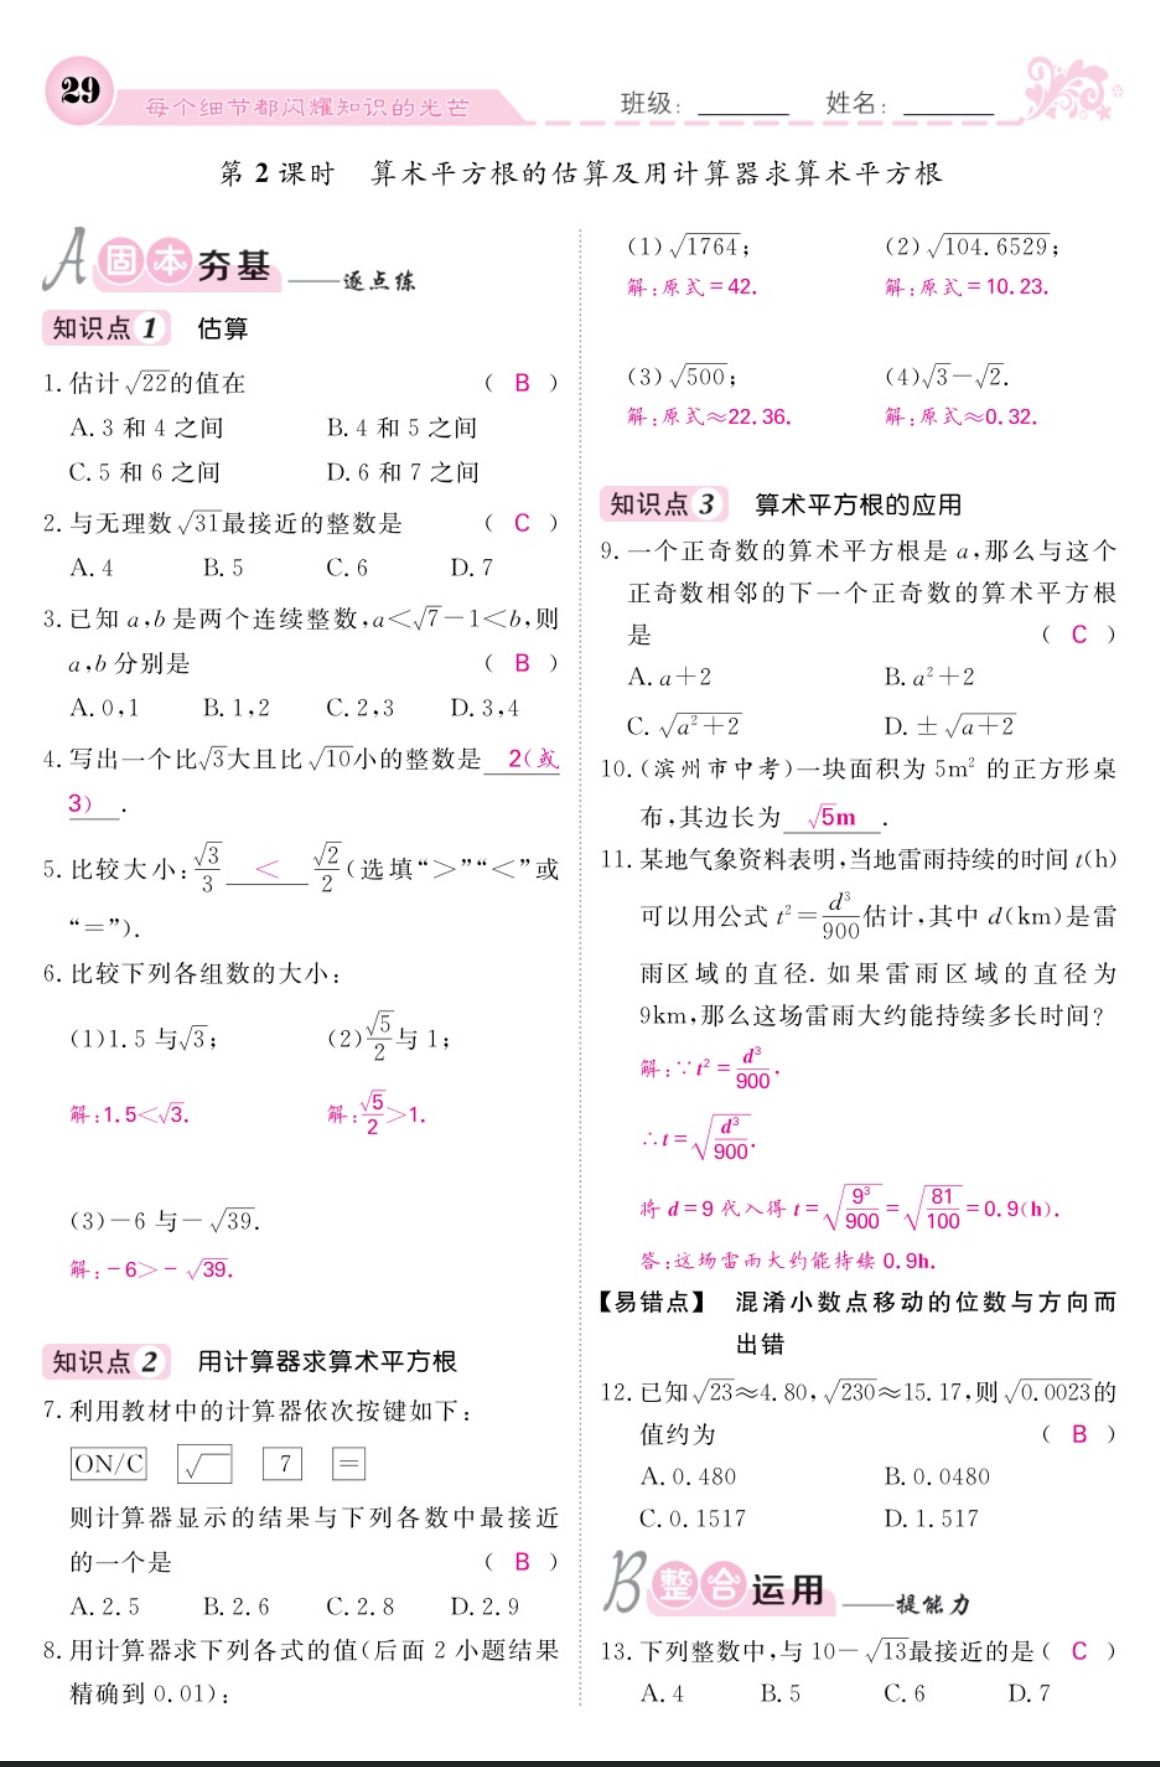 29
每个细节都闪耀知识的光芒
班级:________ 姓名:________
第2课时 算术平方根的估算及用计算器求算术平方根
A 固本夯基——逐点练
知识点1 估算
1.估计√22的值在 ( B )
A.3和4之间 B.4和5之间
C.5和6之间 D.6和7之间
2.与无理数√31最接近的整数是 ( C )
A.4 B.5 C.6 D.7
3.已知a,b是两个连续整数,a<√7-1<b,则
a,b分别是 ( B )
A.0,1 B.1,2 C.2,3 D.3,4
4.写出一个比√3大且比√10小的整数是 2(或
3) .
5.比较大小:√3/3 < √2/2(选填“>”“<”或
“=”).
6.比较下列各组数的大小:
(1)1.5与√3; (2)√5/2与1;
解:1.5<√3. 解:√5/2>1.
(3)-6与-√39.
解:-6>-√39.
知识点2 用计算器求算术平方根
7.利用教材中的计算器依次按键如下:
ON/C √ 7 =
则计算器显示的结果与下列各数中最接近
的一个是 ( B )
A.2.5 B.2.6 C.2.8 D.2.9
8.用计算器求下列各式的值(后面2小题结果
精确到0.01):
(1)√1764; (2)√104.6529;
解:原式=42. 解:原式=10.23.
(3)√500; (4)√3-√2.
解:原式≈22.36. 解:原式≈0.32.
知识点3 算术平方根的应用
9.一个正奇数的算术平方根是a,那么与这个
正奇数相邻的下一个正奇数的算术平方根
是 ( C )
A.a+2 B.a²+2
C.√(a²+2) D.±√(a+2)
10.(滨州市中考)一块面积为5m²的正方形桌
布,其边长为 √5m .
11.某地气象资料表明,当地雷雨持续的时间t(h)
可以用公式t²=d³/900估计,其中d(km)是雷
雨区域的直径.如果雷雨区域的直径为
9km,那么这场雷雨大约能持续多长时间?
解:∵t²=d³/900,
∴t=√(d³/900).
将d=9代入得t=√(9³/900)=√(81/100)=0.9(h).
答:这场雷雨大约能持续0.9h.
【易错点】 混淆小数点移动的位数与方向而
出错
12.已知√23≈4.80,√230≈15.17,则√0.0023的
值约为 ( B )
A.0.480 B.0.0480
C.0.1517 D.1.517
B 整合运用——提能力
13.下列整数中,与10-√13最接近的是( C )
A.4 B.5 C.6 D.7